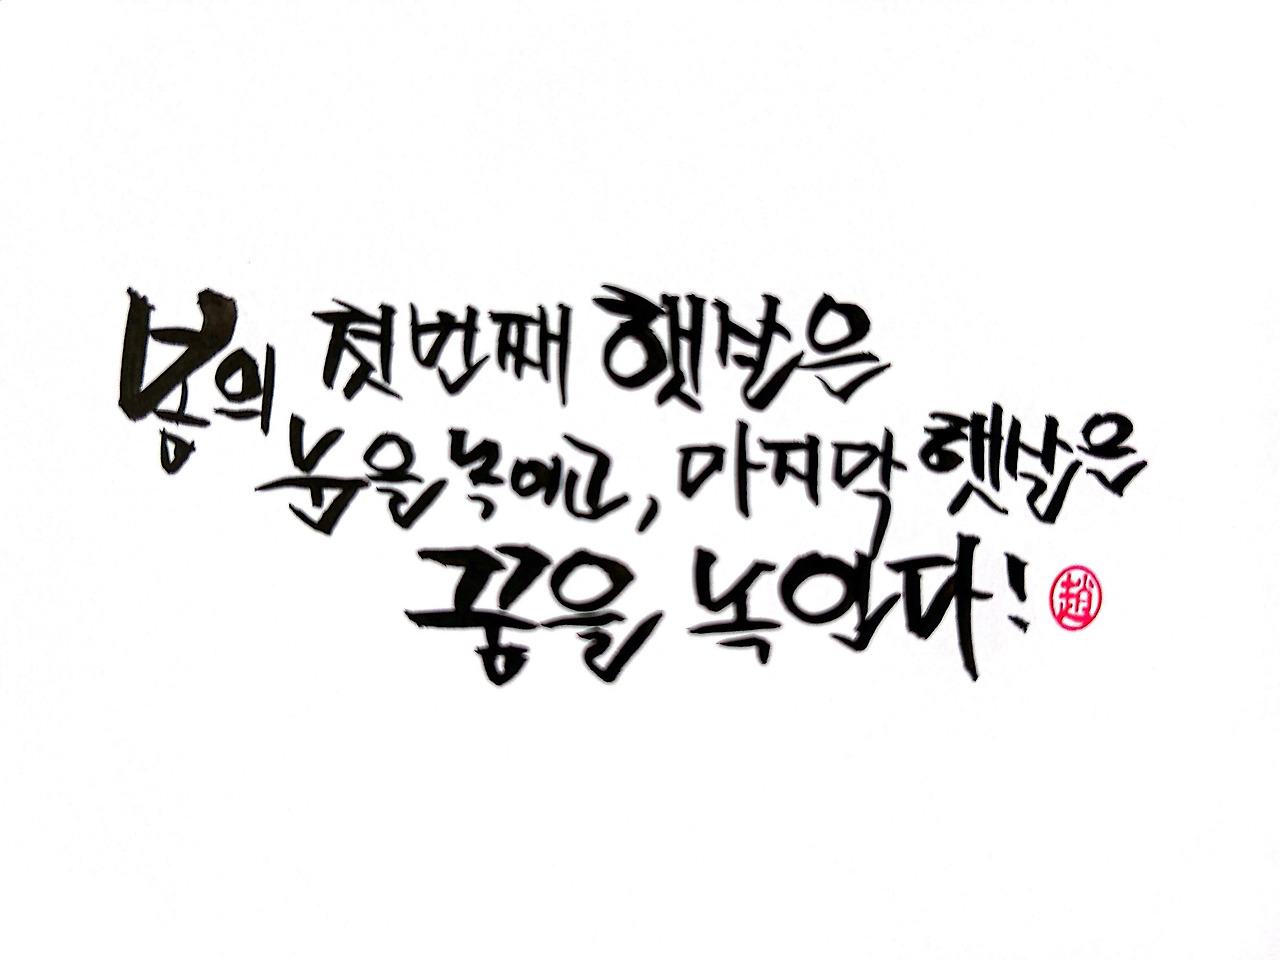 봄의 첫번째 햇살은
눈을 녹이고, 마지막 햇살은
꿈을 녹인다!
趙